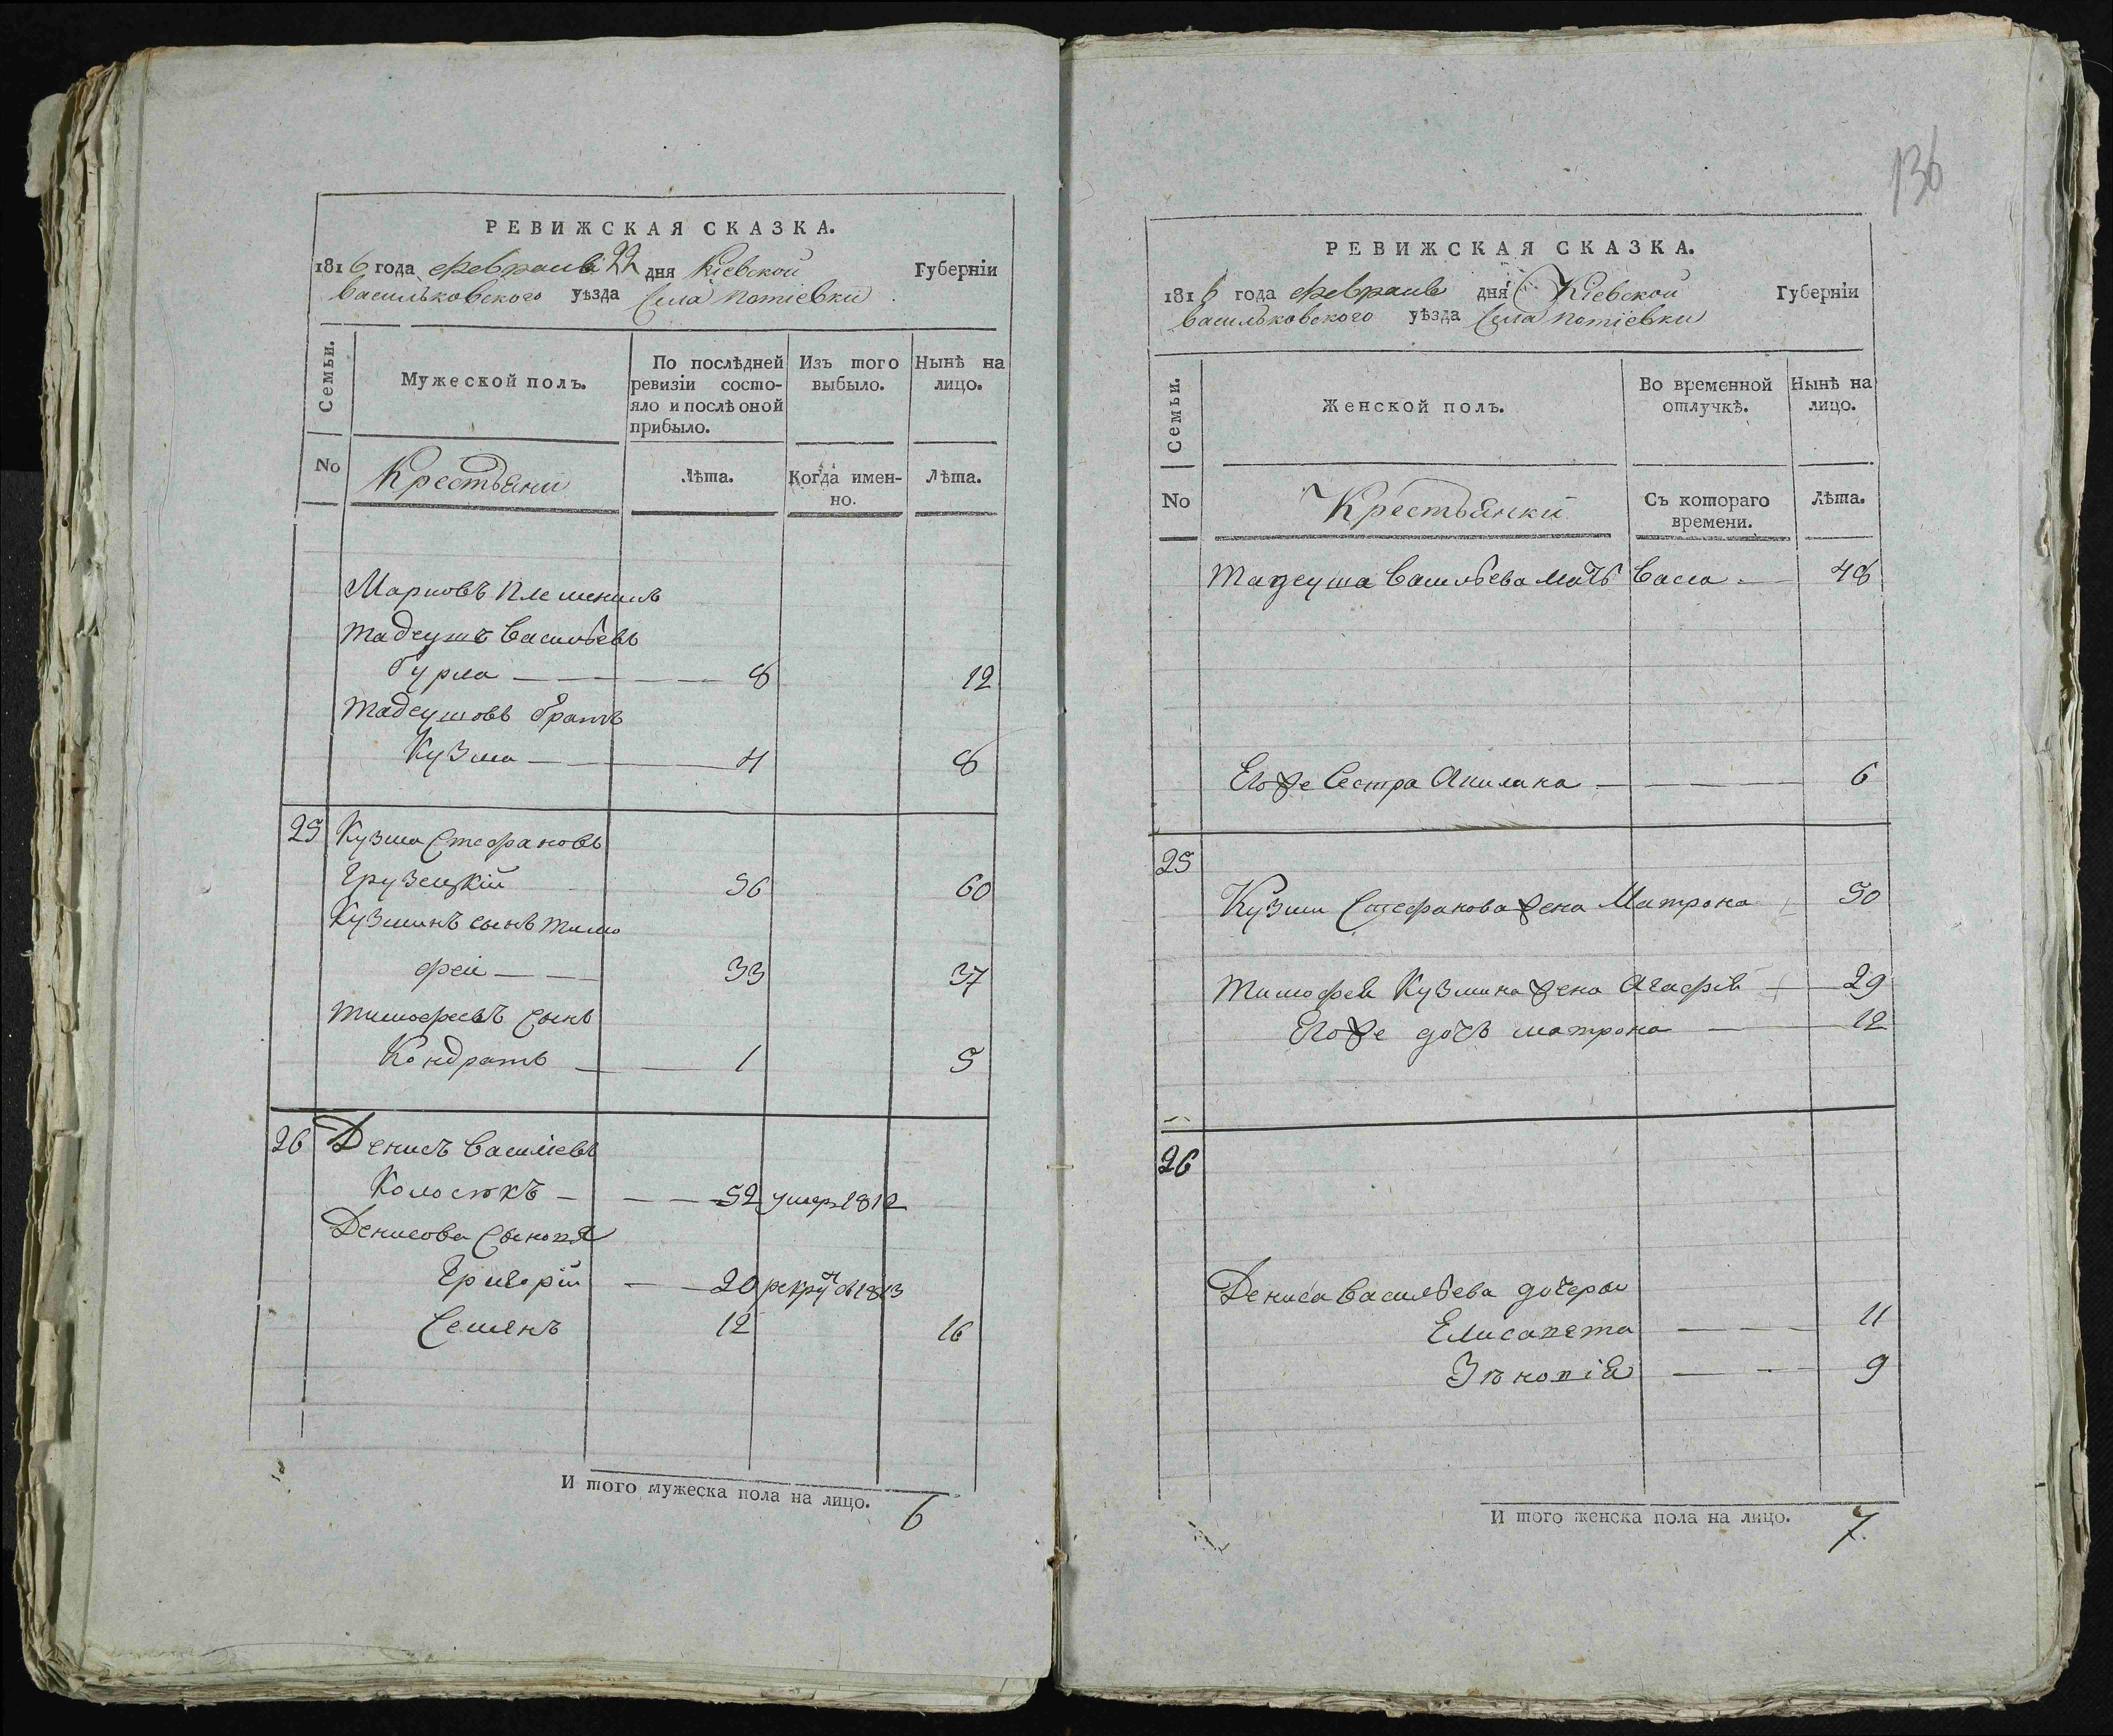 РЕВИЖСКАЯ СКАЗКА.
1816 года февраля 22 дня Кіевской Губерніи
Васильковского уѣзда села Потіевки
Семьи.
Мужеской полъ.
По послѣдней ревизіи состояло и послѣ оной прибыло.
Изъ того выбыло.
Нынѣ на лицо.
No
Крестьяни
Лѣта.
Когда именно.
Лѣта.
Марковъ племеникъ
Тадеушъ Васильевъ
Бурла 8 12
Тадеушовъ братъ
Кузма 4 8
25 Кузма Стефановъ
Грузецкій 56 60
Кузминъ сынъ Тимо
фей 33 37
Тимофеевъ сынъ
Кондратъ 1 5
26 Денисъ Василіевъ
52 умер 1812
Денисова сыновя
Григорій 20 рекрут 1813
Семенъ 12 16
И того мужеска пола на лицо. 6
136
РЕВИЖСКАЯ СКАЗКА.
1816 года февраля дня Кіевской Губерніи
Васильковского уѣзда села Потіевки
Семьи.
Женской полъ.
Во временной отлучкѣ.
Нынѣ на лицо.
No
Крестьянки
Съ котораго времени.
Лѣта.
Тадеуша Васильева мать Васса 48
Его же сестра Акилина 6
25
Кузми Стефанова жена Матрона 50
Тимофея Кузмина жена Агафія 29
Его же дочь Матрона 12
26
Дениса Васильева дочеры
Елисавета 11
Зѣновія 9
И того женска пола на лицо. 7